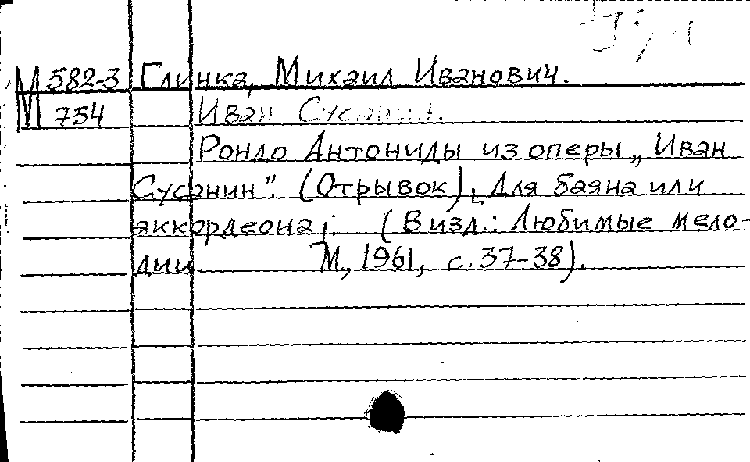 М 582-3 Глинка, Михаил Иванович.
М 754 Иван Сусанин.
Рондо Антониды из оперы „Иван
Сусанин". (Отрывок). Для баяна или
аккордеона. (В изд.: Любимые мело-
дии М., 1961, с. 37-38).